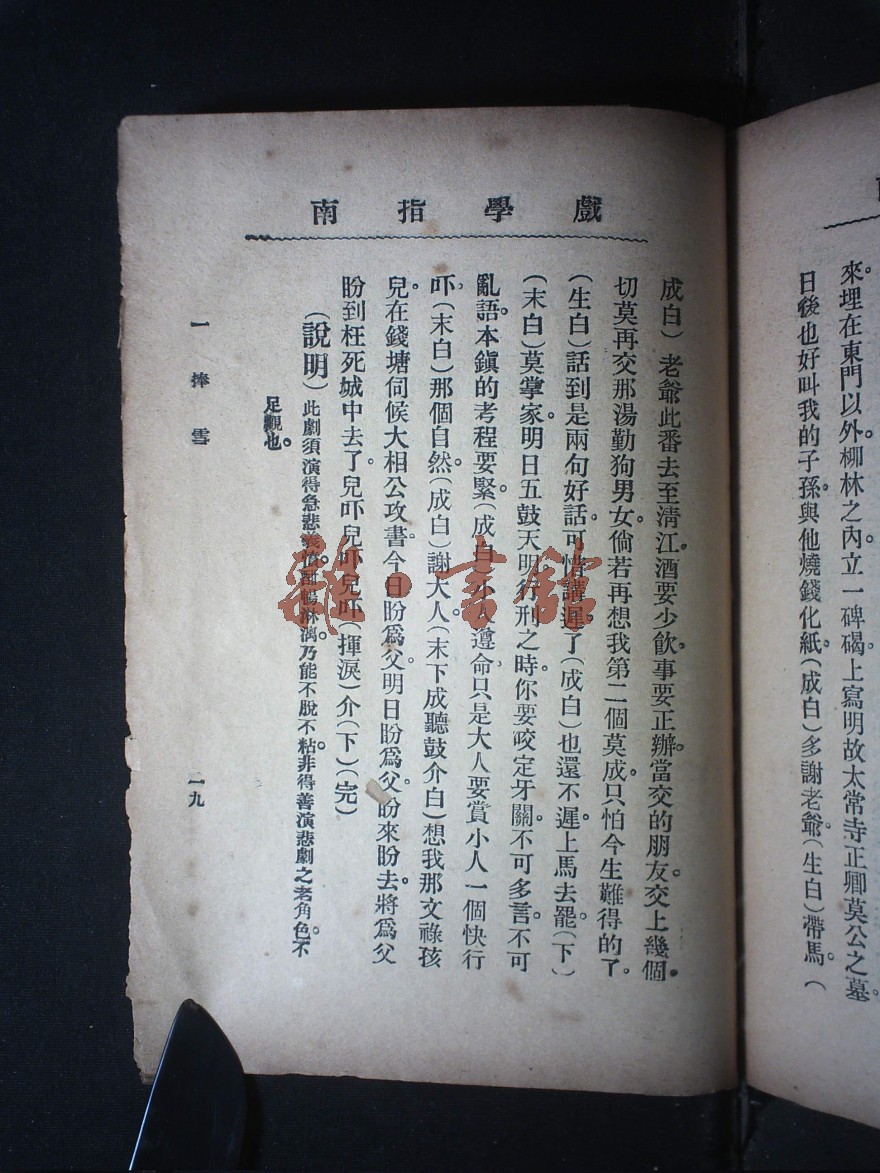 來。埋在東門以外柳林之內。立一碑碣。上寫明故太常寺正卿莫公之墓。
日後也好叫我的子孫。與他燒錢化紙。(成白)多謝老爺(生白)帶馬。(
戲學指南
成白)老爺此番去至清江。酒要少飲。事要正辦。當交的朋友。交上幾個。
切莫再交那湯勤狗男女。倘若再想我第二個莫成。只怕今生難得的了。
(生白)話到是兩句好話。可惜講遲了(成白)也還不遲。上馬去罷(下)
(末白)莫掌家明日五鼓天明行刑之時。你要咬定牙關。不可多言。不可
亂語。本鎮的考程要緊。(成白)小人遵命。只是大人要賞小人一個快行
吓。(末白)那個自然(成白)謝大人。(末下成聽鼓介白)想我那文祿孩
兒。在錢塘伺候大相公攻書。今日盼爲父。明日盼爲父。盼來盼去。將爲父
盼到枉死城中去了。兒吓兒吓兒吓(揮淚)介(下)(完)
(說明)此劇須演得急悲義憤。酣暢淋漓。乃能不脫不粘。非得善演悲劇之老角色。不
足觀也。
一捧雪
一九
雜·書館